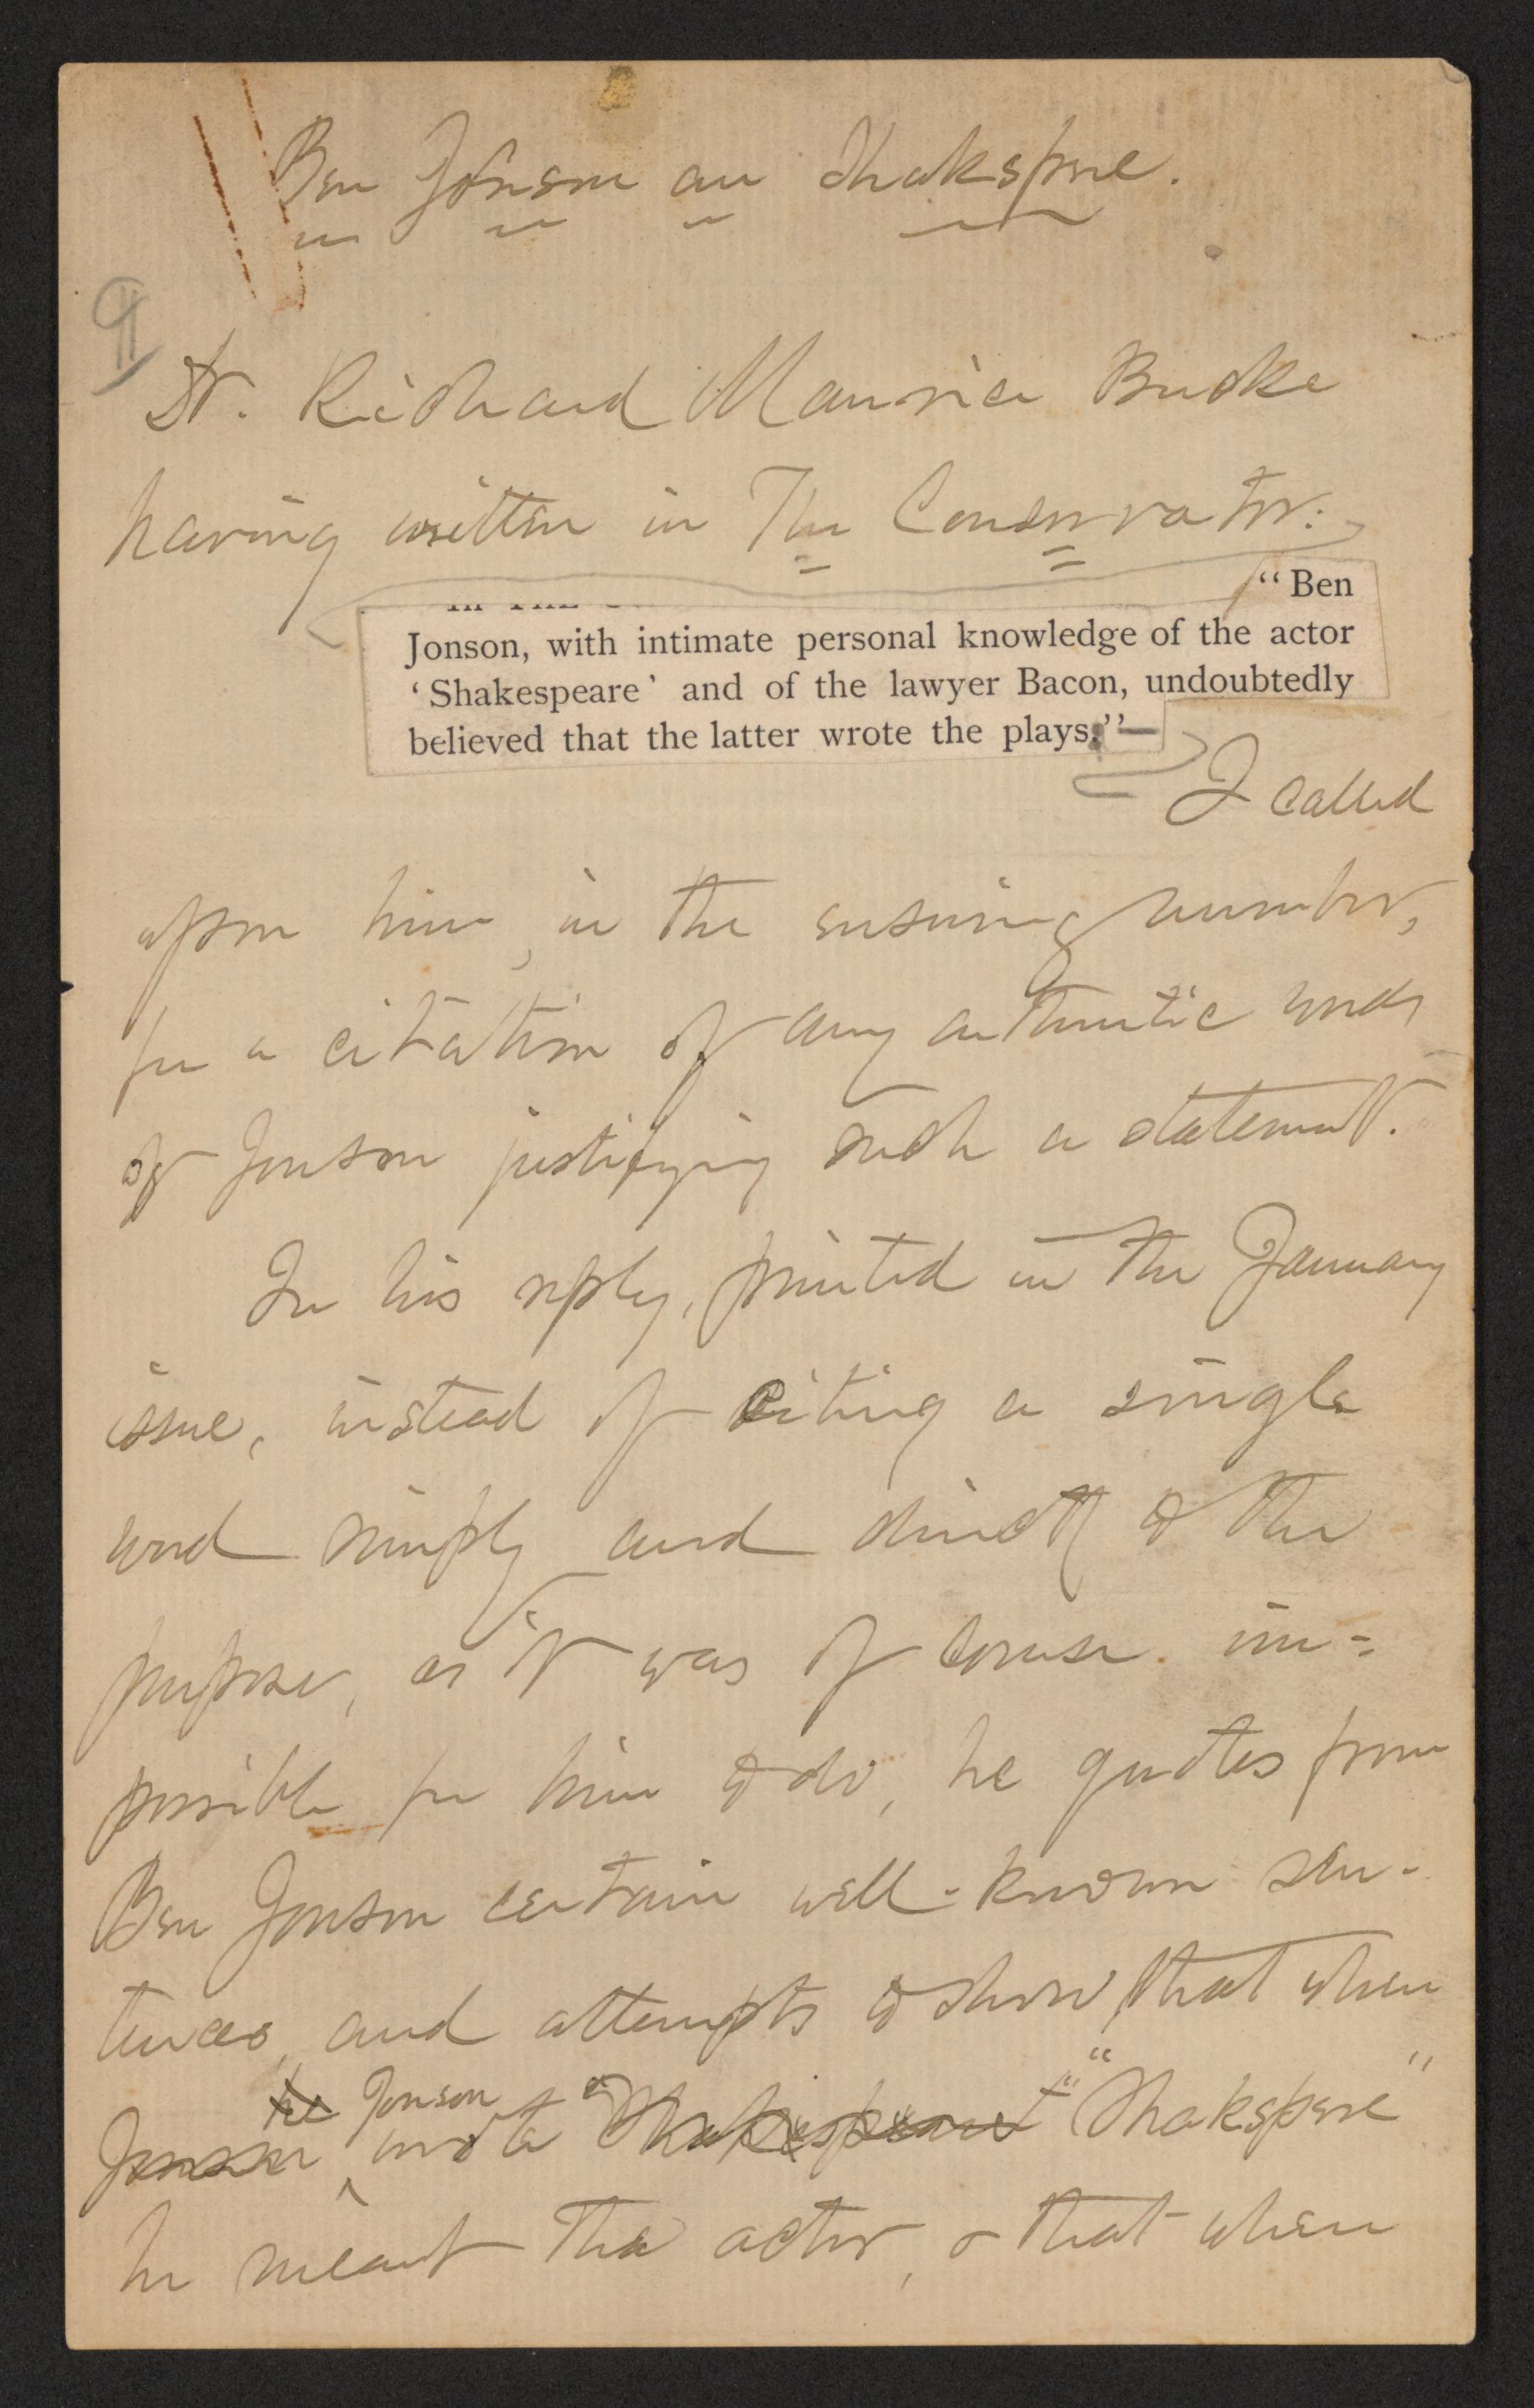 Ben Jonson on Shakspere.
¶
Dr. Richard Maurice Bucke
having written in The Conservator:
"Ben
Jonson, with intimate personal knowledge of the actor
'Shakespeare' and of the lawyer Bacon, undoubtedly
believed that the latter wrote the plays."—
I called
upon him, in the ensuing number,
for a citation of any authentic words
of Jonson justifying such a statement.
In his reply, printed in the January
issue, instead of citing a single
word simply and directly to the
purpose, as it was of course im-
possible for him to do, he quotes from
Ben Jonson certain well-known sen-
tences, and attempts to show that when
he Jonson
Jonson wrote "Shakespeare" "Shakspere"
he meant the actor, & that when